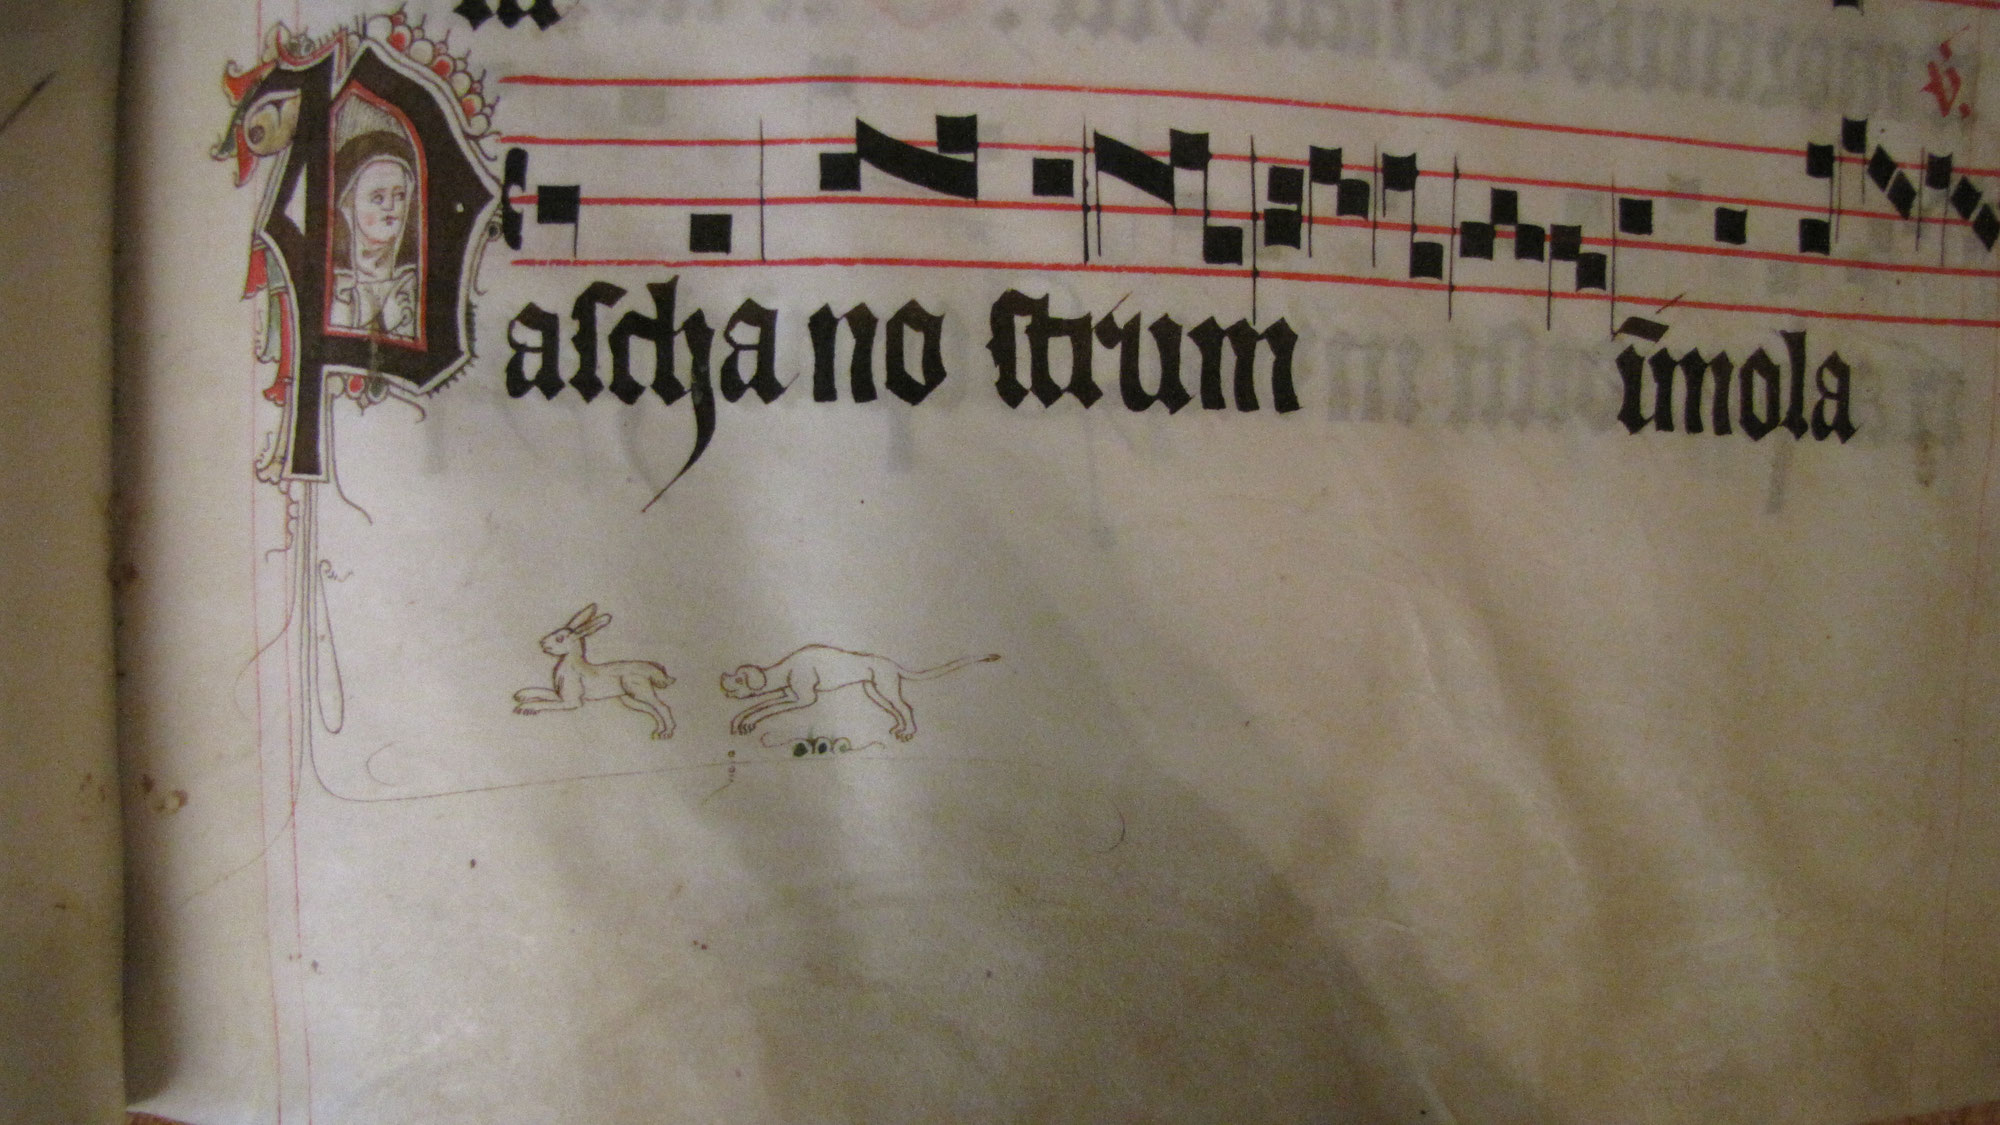 ℣.
Pascha no strum īmola